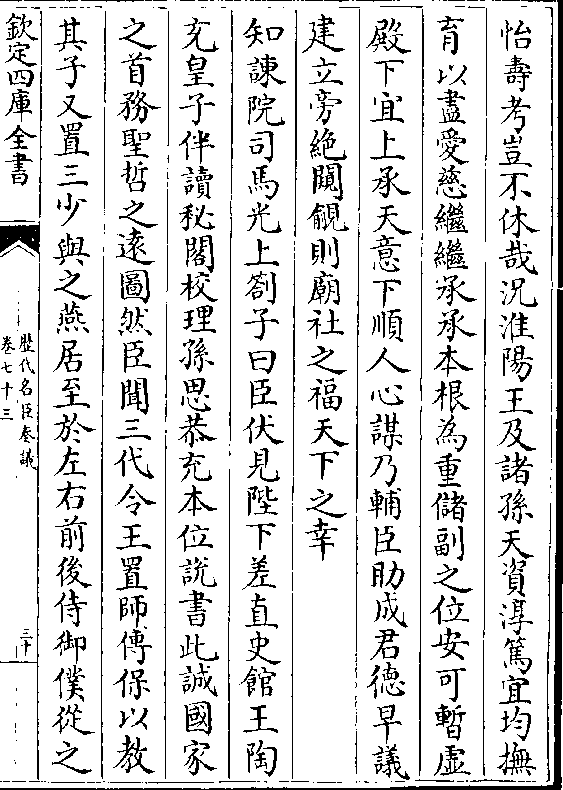 怡壽考豈不休哉況淮陽王及諸孫天資淳篤宜均撫
育以盡愛慈繼繼承承本根為重儲副之位安可暫虛
殿下宜上承天意下順人心謀乃輔臣助成君德早議
建立旁絶闚覦則廟社之福天下之幸
知諫院司馬光上劄子曰臣伏見陛下差直史館王陶
充皇子伴讀秘閣校理孫思恭充本位說書此誠國家
之首務聖哲之遠圖然臣聞三代令王置師傅保以教
其子又置三少與之燕居至於左右前後侍御僕從之
欽定四庫全書
歴代名臣奏議
卷七十三
三十